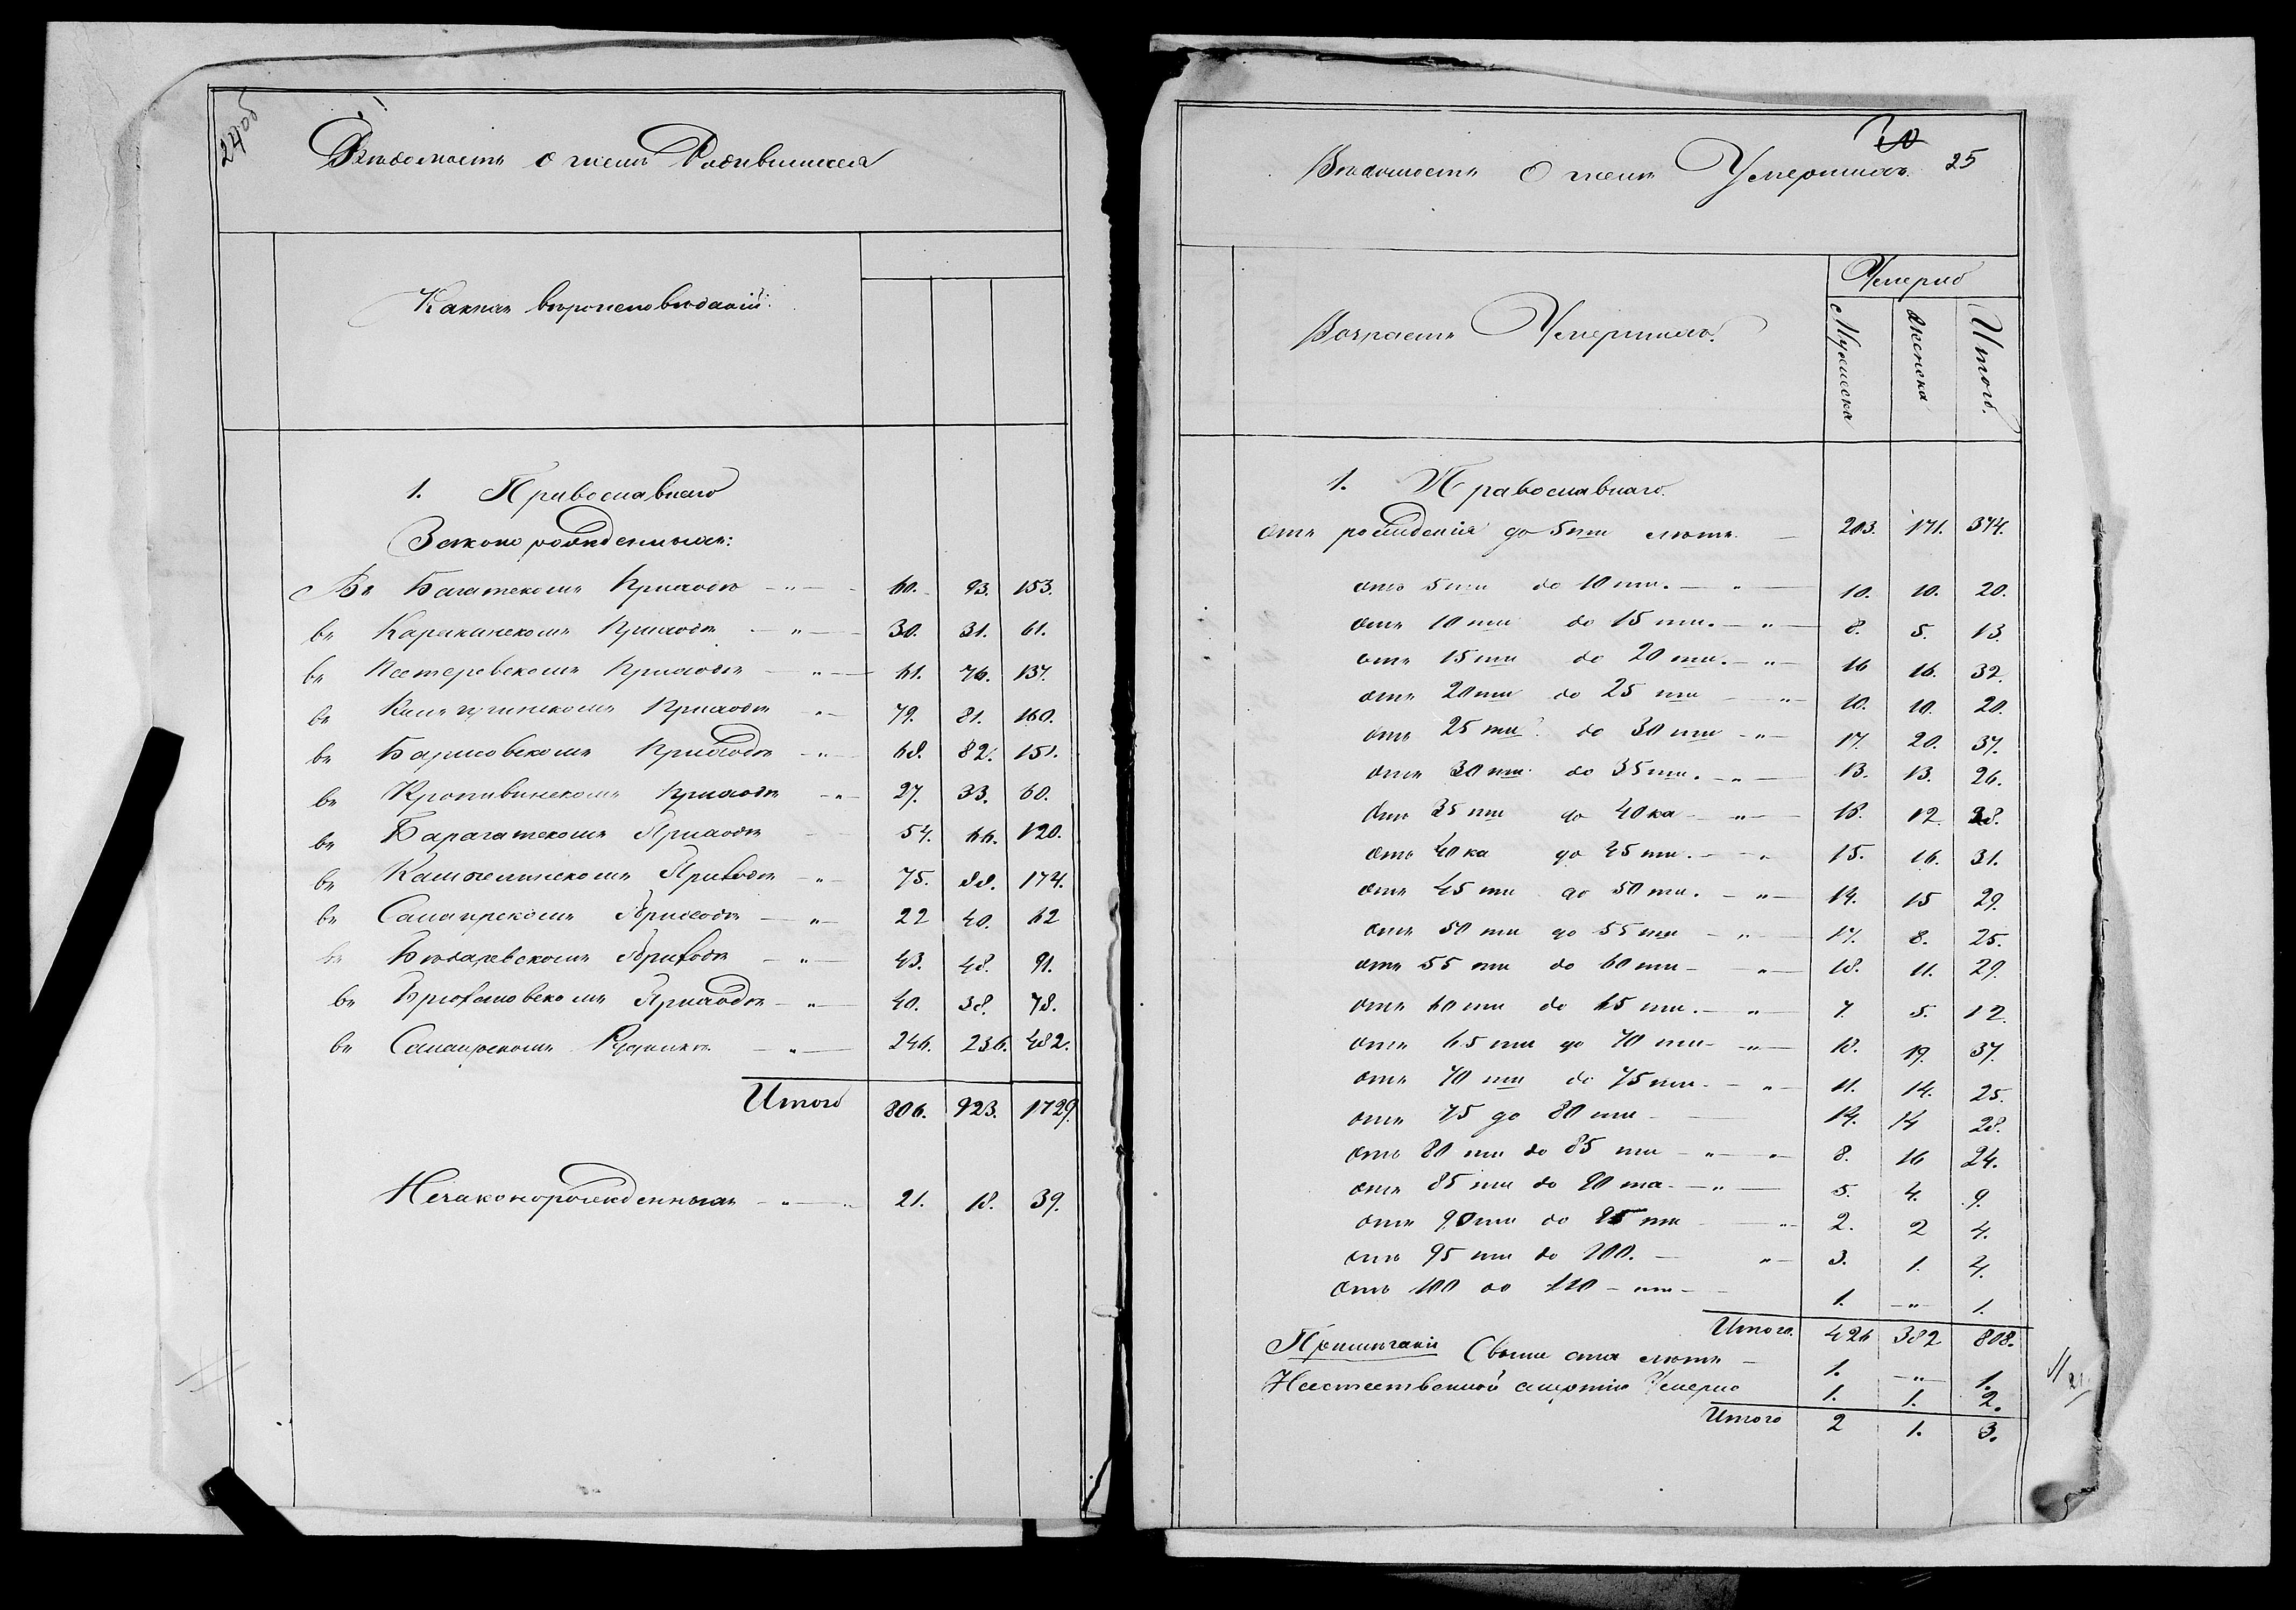 24об
Вѣдомость о числѣ Родившихся
Какихъ вѣроисповѣданій:
1. Православнаго
Законорожденныхъ:
Въ Багатскомъ Приходѣ — „ — 60. 93. 153.
въ Каракинскомъ Приходѣ — „ — 30. 31. 61.
въ Пестеревскомъ Приходѣ — „ — 61. 76. 137.
въ Приходѣ — „ — 79. 81. 160.
въ Барцовскомъ Приходѣ — „ — 68. 82. 151.
въ Кропивинскомъ Приходѣ — „ — 27. 33. 60.
въ Барагатскомъ Приходѣ — 54. 66. 120.
въ Приходѣ — „ — 75. 88. 174.
въ Салаирскомъ Приходѣ — „ — 22 40. 62
въ Приходѣ — „ — 43. 48. 91.
въ Брюхановскомъ Приходѣ — „ — 40. 38. 78.
въ Салаирскомъ Рудникѣ — „ — 246. 236. 482.
Итого 806. 923. 1729.
Незаконорожденныхъ — „ — 21. 18. 39.
25
Вѣдомость о числѣ Умершихъ
Умерло
Возрастъ Умершихъ.
Мужеска
Женска
Итого.
1. Православнаго.
отъ рожденія до 5ти лѣтъ — 203. 171. 374.
отъ 5ти до 10ти. — „ — 10. 10. 20.
отъ 10ти до 15ти. — „ — 8. 5. 13.
отъ 15ти до 20ти. — „ — 16 16. 32.
отъ 20ти до 25ти — „ — 10. 10. 20.
отъ 25ти до 30ти — „ — 17. 20. 37.
отъ 30ти до 35ти. — „ — 13. 13. 26.
отъ 35ти до 40ка — „ — 16. 12. 28.
отъ 40ка до 45ти. — „ 15. 16. 31.
отъ 45ти до 50ти. — „ — 14. 15 29.
отъ 50ти до 55ти — „ — 17. 8. 25.
отъ 55ти до 60ти — „ — 18. 11. 29.
отъ 60ти до 65ти. — „ — 7. 5. 12.
отъ 65ти до 70ти — „ — 18. 19. 37.
отъ 70ти до 75ти. — „ — 11. 14. 25.
отъ 75 до 80ти — 14. 14 28.
отъ 80ти до 85ти — „ — „ 8. 16 24.
отъ 85ти до 90та. — „ — 5. 4. 9.
отъ 90ти до 95ти — „ 2. 2 4.
отъ 95ти до 100. — „ — 3. 1. 4.
отъ 100 до 110-ти — 1. — „ — 1.
Итого. 426 382 808.
Примѣчаніе Свыше ста лѣтъ — 1. — „ — 1.
Неестественной смертію Умерло 1. 1. 2.
Итого 2 1. 3.